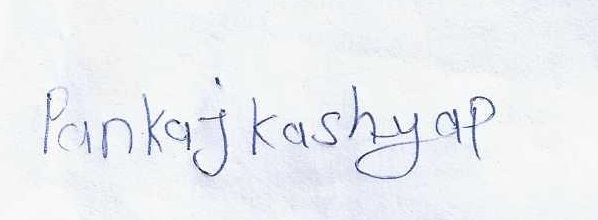 Pankaj kashyap